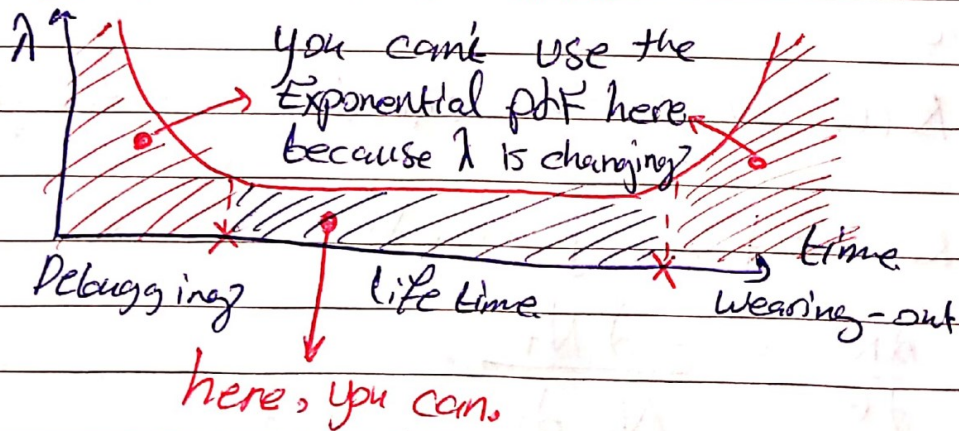 λ
you can't use the
Exponential pdf here
because λ is changing
time
Debugging
life time
Wearing-out
here, you can.